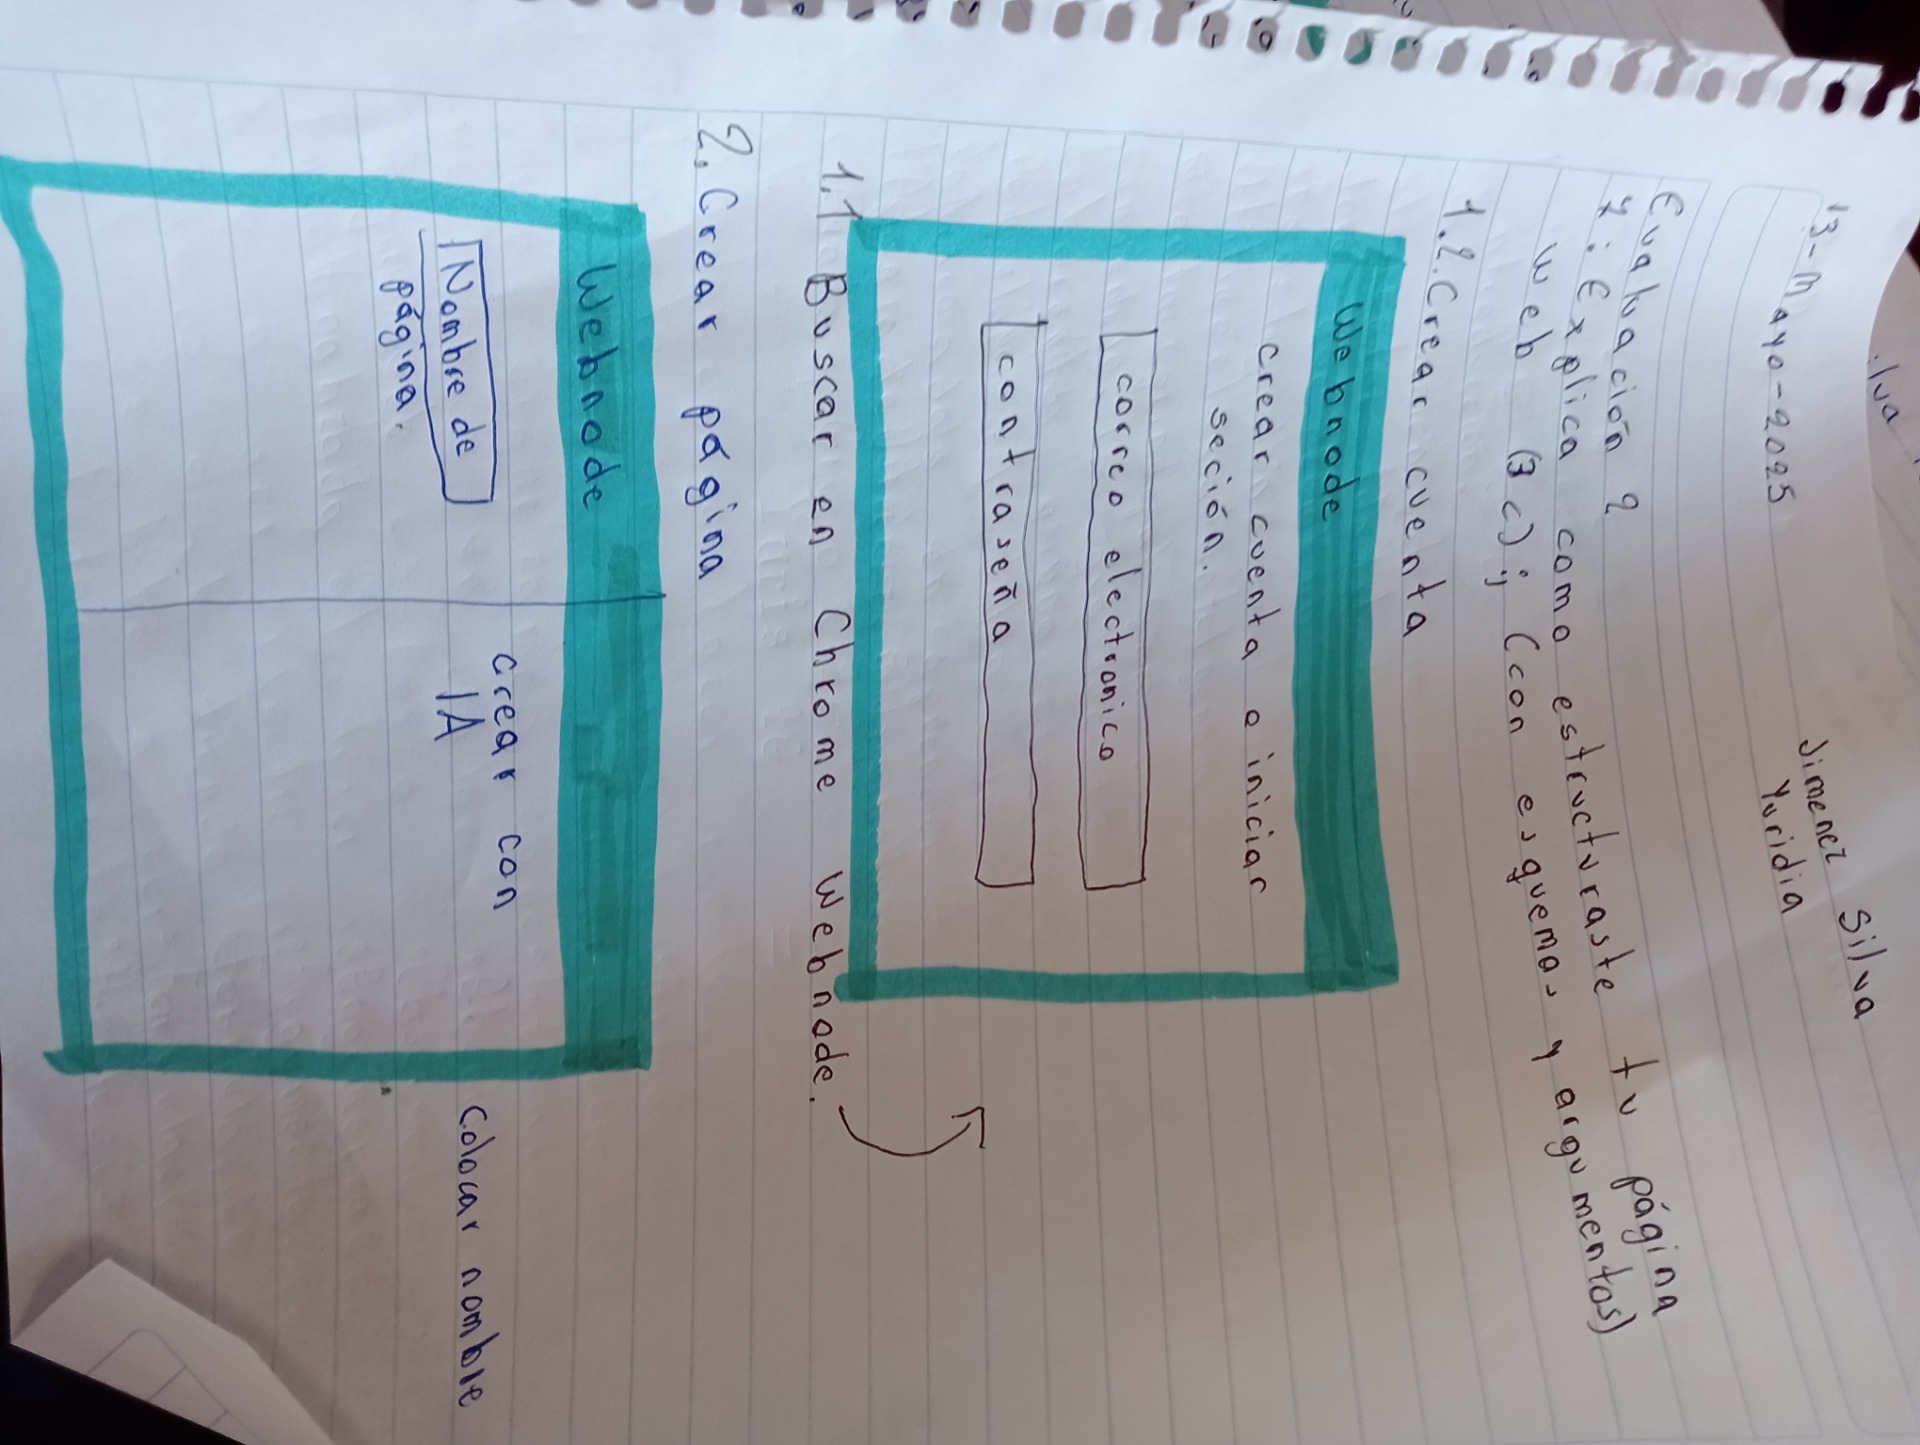 Jimenez Silva
13-Mayo-2025 Yuridia
Evaluación 2
Y: Explica como estructuraste tu página
web (3 c);; (con esquemas y argumentos)
1.2. Crear cuenta
Webnode
crear cuenta o iniciar
seción.
correo electronico
contraseña
1.1 Buscar en Chrome Webnode.
2. Crear página
Webnode
Nombre de
página.
crear con
IA
Colocar nombre